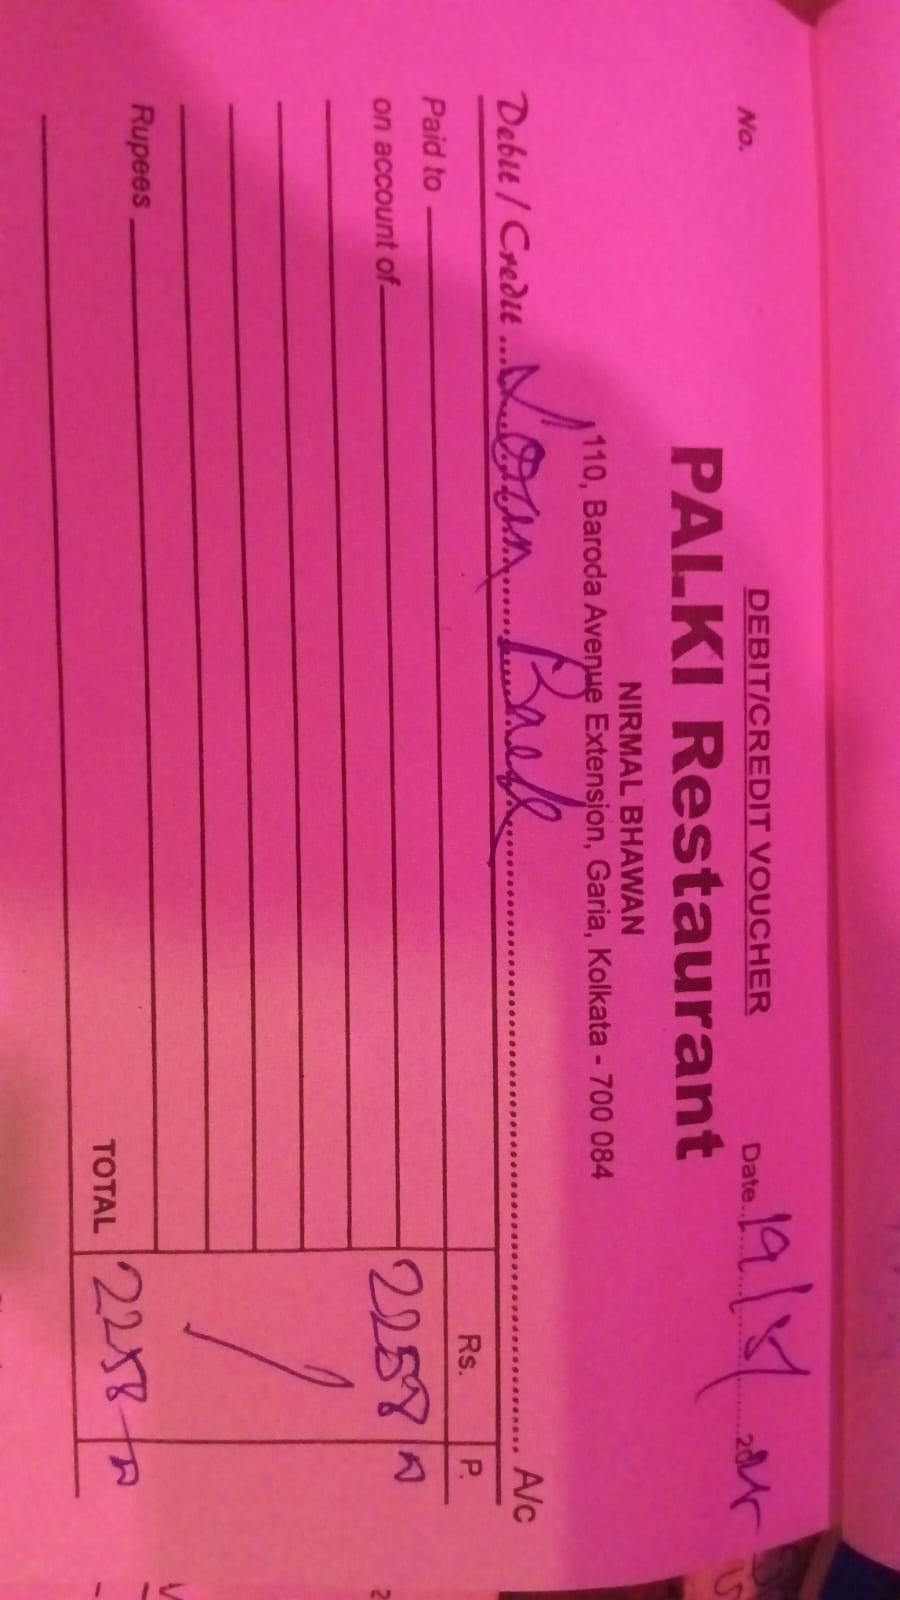 DEBIT/CREDIT VOUCHER
No.
Date 19/5/
PALKI Restaurant
NIRMAL BHAWAN
110, Baroda Avenue Extension, Garia, Kolkata - 700 084
Debit / Credit A/c
Rs. P.
Paid to
on account of 2258
Rupees
TOTAL 2258